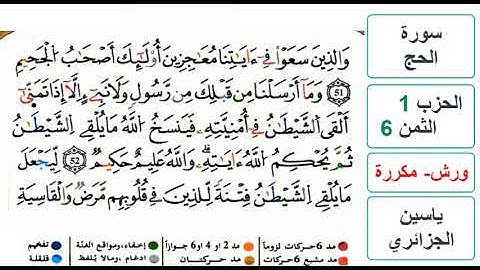 وَالذِينَ سَعَوْا فِےٓ ءَايَٰتِنَا مُعَٰجِزِينَ أُوْلَٰٓئِكَ أَصْحَٰبُ الْجَحِيمِ
51 وَمَآ أَرْسَلْنَا مِن قَبْلِكَ مِن رَّسُولٖ وَلَا نَبِےٓءٍ اِلَّآ إِذَا تَمَنّ۪يٰٓ
أَلْقَى اَلشَّيْطَٰنُ فِےٓ أُمْنِيَّتِهِۦ فَيَنسَخُ اُللَّهُ مَا يُلْقِے اِلشَّيْطَٰنُ
ثُمَّ يُحْكِمُ اُللَّهُ ءَايَٰتِهِۦۗ وَاللَّهُ عَلِيمٌ حَكِيمٞ 52 لِّيَجْعَلَ
مَا يُلْقِے اِلشَّيْطَٰنُ فِتْنَةٗ لِّلذِينَ فِے قُلُوبِهِم مَّرَضٞ وَالْقَاسِيَةِ
مد 6 حركات لزوماً
مد 2 أو 4 أو 6 جوازاً
إخفاء، ومواقع الغنة
تفخيم
مد مشبع 6 حركات
مد حركتان
إدغام، ومالا يُلفظ
قلقلة
سورة
الحج
الحزب 1
الثمن 6
ورش- مكررة
ياسين
الجزائري